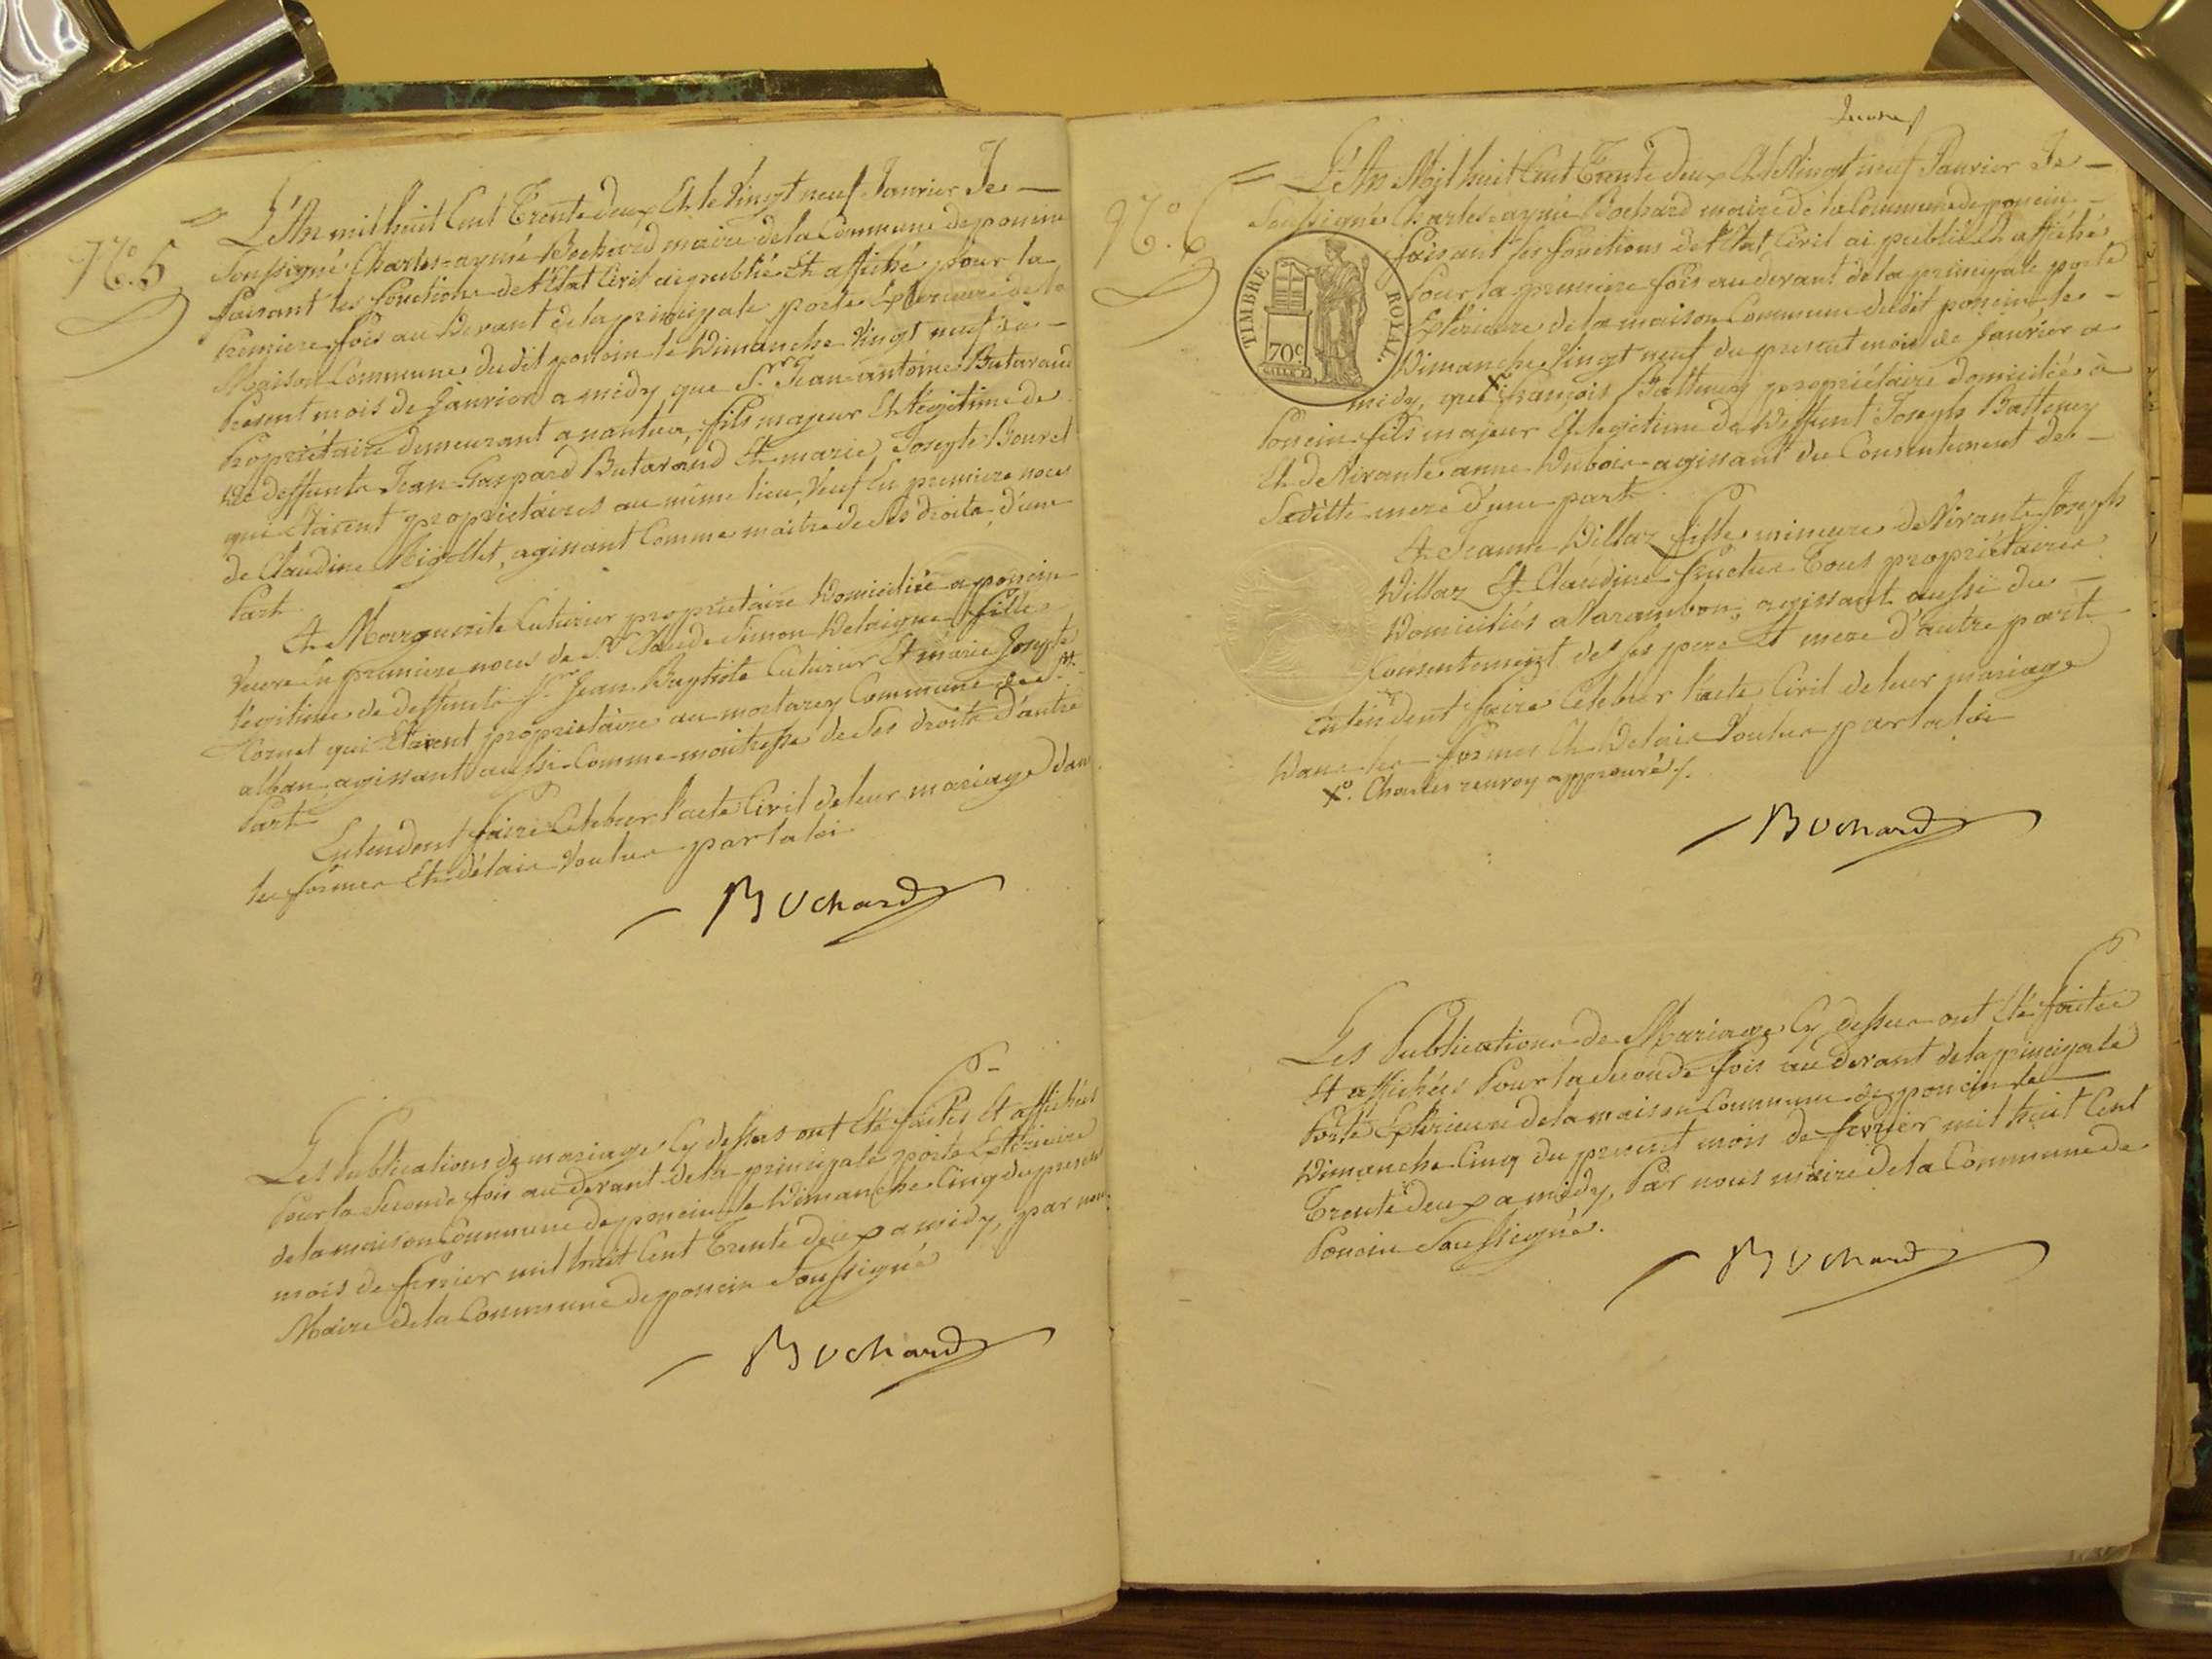 N.o 5
= L'An mil huit Cent Trente deux Et le Vingt neuf Janvier Je —
Soussigné Charles-aymé Bochard maire de la Commune de poncin
faisant les fonctions de l'Etat Civil ai publié Et affiché pour la
Premiere fois au devant de la principale porte Exterieure de la
Maison Commune dudit poncin le Dimanche Vingt neuf du —
Present mois de Janvier a midy, que Sr. Jean-antoine Butavand
Propriétaire demeurant a nantua, fils majeur Et légitime de
de deffunts Jean-Gaspard Butavand Et marie Josephte Bouvet
qui Etaient propriétaires au même lieu, Veuf En premiere noces
de Claudine, agissant Comme maitre de Ses droits, d'une
Part
Et Marguerite Cuturier propriétaire Domiciliée a poncin
Veuve En premiere noces de Sr. Claude Simon Delaigue, fille
légitime de deffunts Sr. Jean-Baptiste Cuturier Et marie Josephte
Cornet qui Etaient propriétaire au mortarey Commune de St.
alban agissant aussi Comme maitresse de Ses droits d'autre
Part
Entendent faire Celebrer l'acte Civil de leur mariage dans
les formes Et délais Voulus par la loi
Bochard
Les Publications de mariage Cy dessus ont Eté faites Et affichées
Pour la Seconde fois au devant de la principale porte Exterieure
de la maison Commune de poncin le Dimanche Cinq du present
mois de fevrier mil huit Cent Trente deux a midy, par nous
Maire de la Commune de poncin Soussigné
Bochard
N.o 6
= L'An Mil huit Cent Trente deux Et le Vingt neuf Janvier Je —
Soussigné Charles-aymé Bochard maire de la Commune de poncin —
faisant les fonctions de l'Etat Civil ai publié Et affiché
Pour la premiere fois au devant de la principale porte
Exterieure de la maison Commune dudit poncin le —
Dimanche Vingt neuf du present mois de Janvier a
midy, que x françois Batteney propriétaire domicilié à
Poncin fils majeur Et legitime de Deffunt Joseph Batteney
Et de Vivante anne Dubois agissant du Consentement de —
Sadite mere d'une part
TIMBRE ROYAL.
70c
Et Jeanne Villaz fille mineure de Vivants Joseph
Villaz Et Claudine Tous propriétaires
Domiciliés a Varambon, agissant aussi du —
Consentement de Ses pere Et mere d'autre part
Entendent faire Celebrer l'acte Civil de leur mariage
Dans les formes Et Delais Voulus par la loi
Xo. Charles renvoy approuvé
Bochard
Les Publications de Mariage Cy dessus ont Eté faites
Et affichées Pour la Seconde fois au devant de la principale
Porte Exterieure de la maison Commune de poncin le
Dimanche Cinq du present mois de fevrier mil huit Cent
Trente deux a midy, Par nous maire de la Commune de
Poncin Soussigné.
Bochard